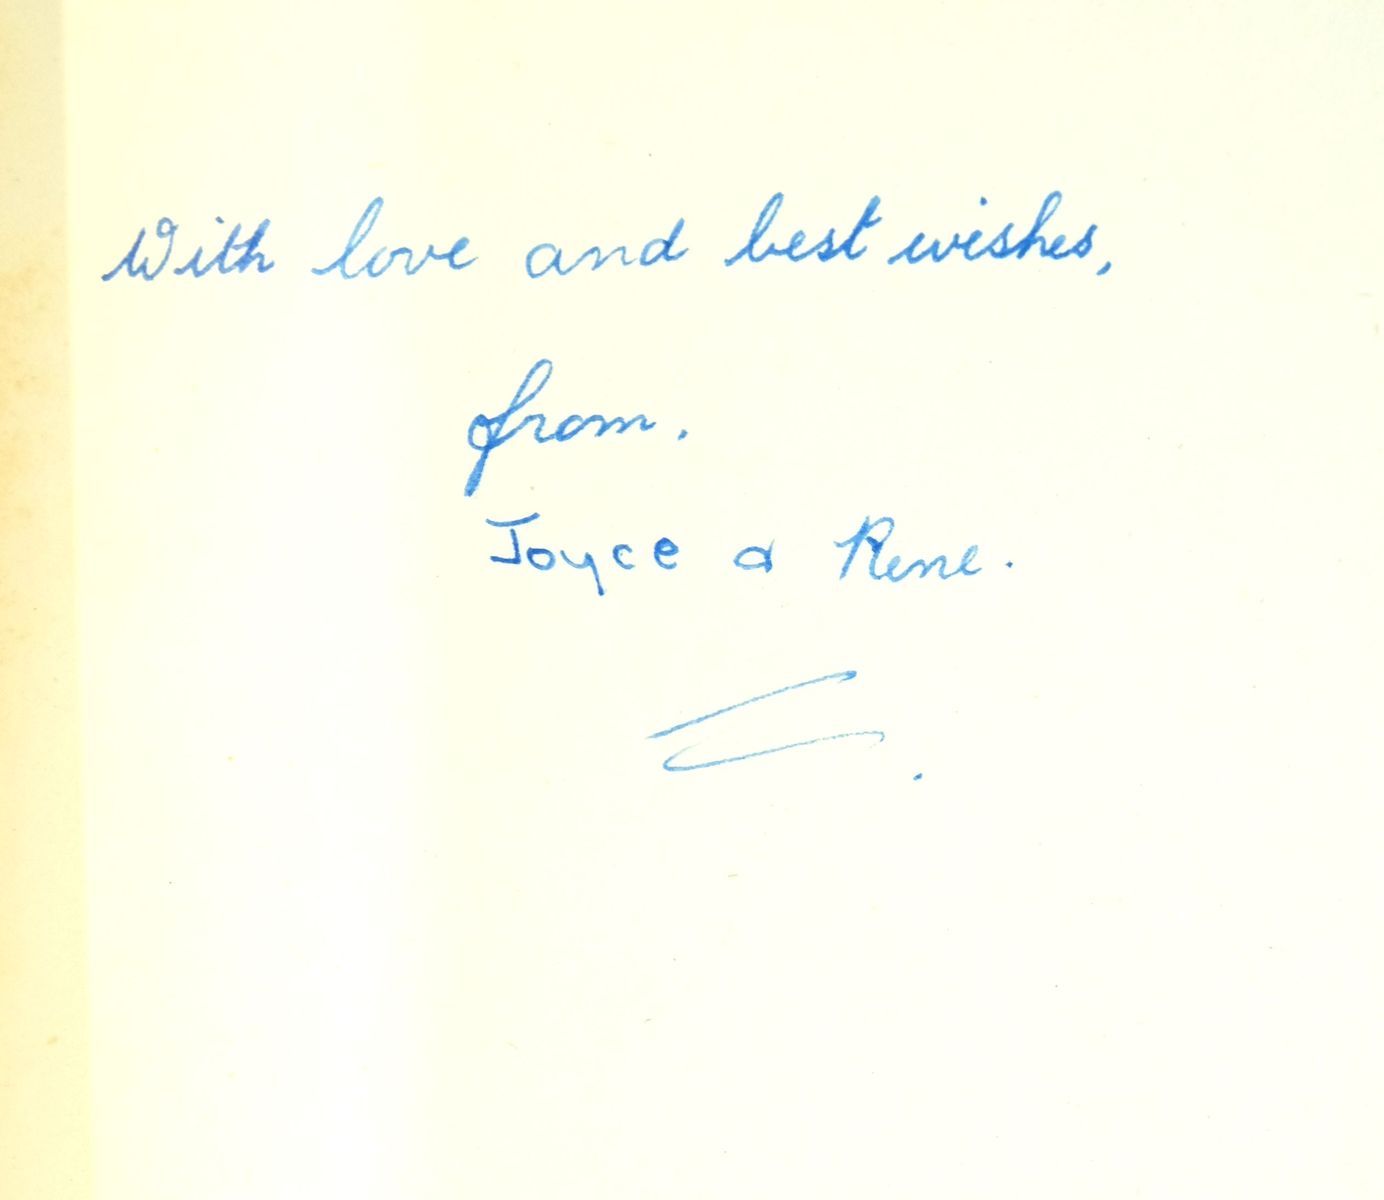 With love and best wishes,
from.
Joyce & Rene.